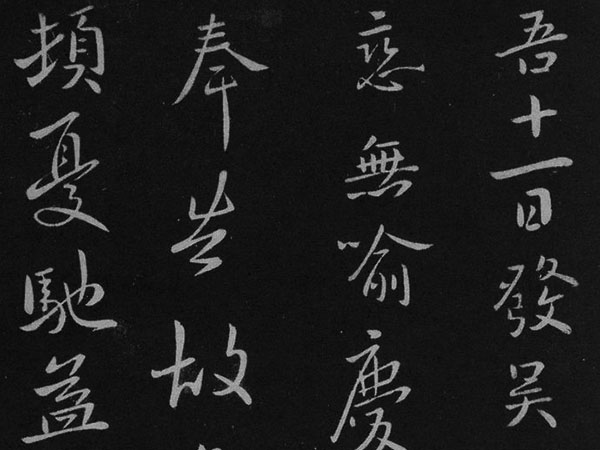 吾十一日發吳
恋無喻慶
奉告故
頓憂馳益